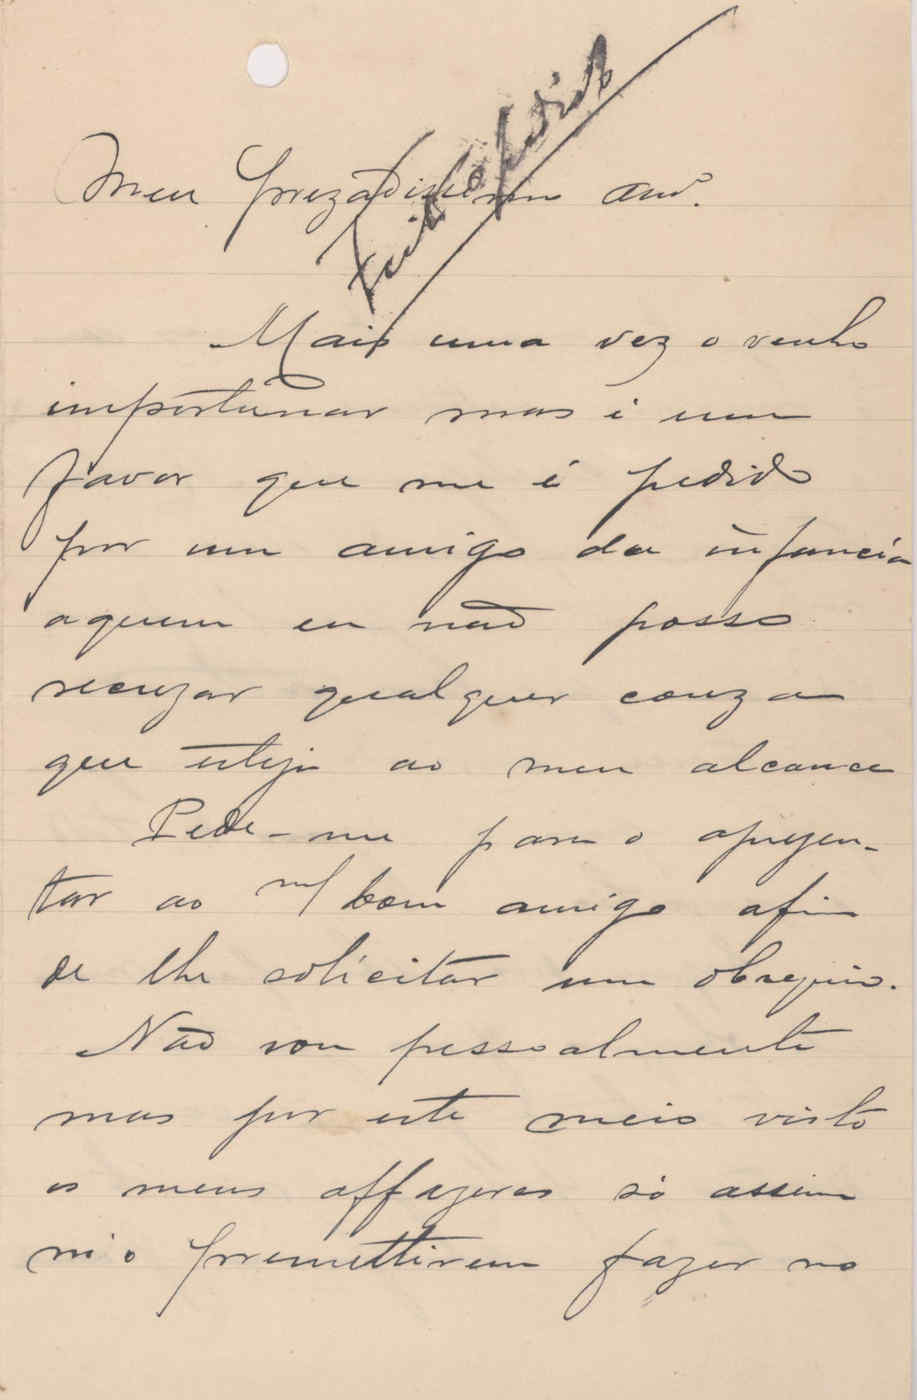 Meu prezadissimo Amº.
Mais uma vez o venho
importunar mas é um
favor que me é pedido
por um amigo da infancia
aquem eu não posso
recuzar qualquer couza
que esteja ao meu alcance
Pede-me para o aprezen-
tar ao m/ bom amigo afim
de lhe solicitar um obsequio.
Não vou pessoalmente
mas por este meio visto
os meus affazeres só assim
m'o premettirem fazer no